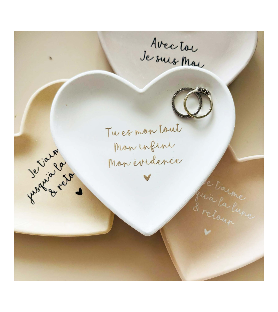 Avec toi
Je suis Moi
Tu es mon tout
Mon infini
Mon evidence
Je t'aime
jusqu'à la
& retou
t'aime
qu'à la lune
& retour